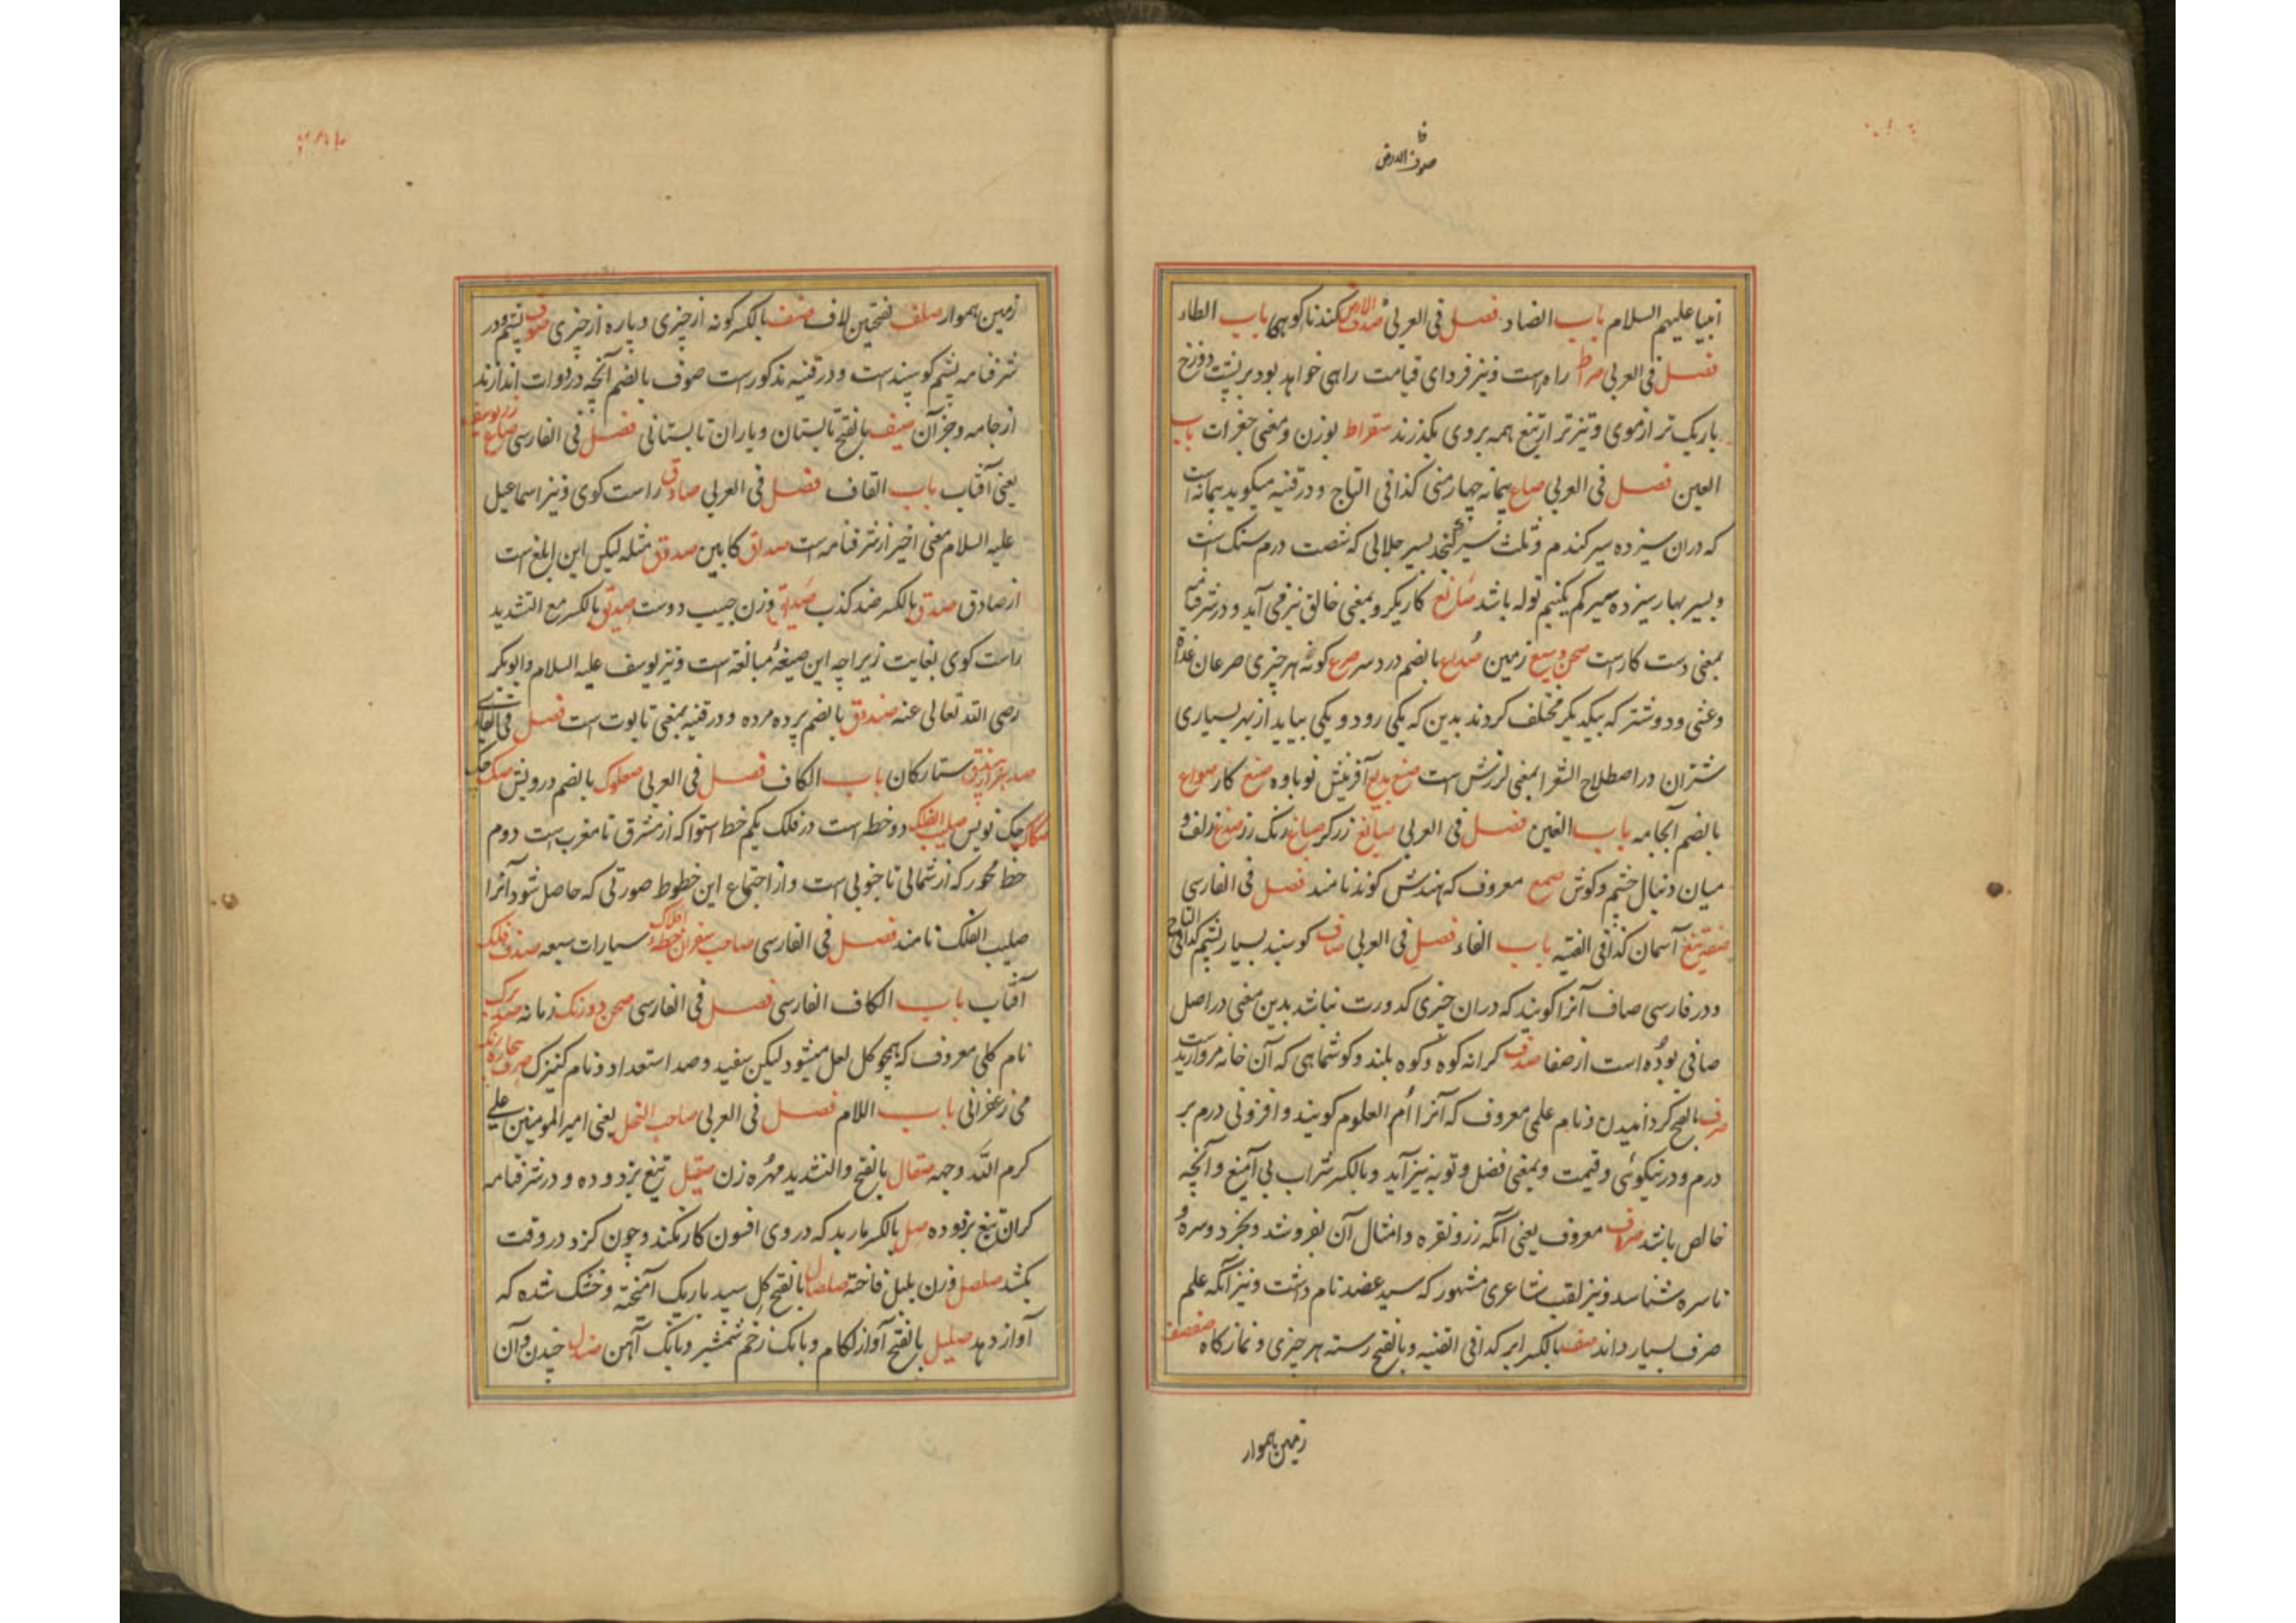 صوف الارض
انبیا علیهم السلام باب الضاد فصل فی العربی کندنا کوهی باب الطاء
فصل فی العربی صراط راه است و نیز فردای قیامت راهی خواهد بود بر پشت دوزخ
باریک تر از موی و تیزتر از تیغ همه بر وی بگذرند سقراط بوزن و معنی جغرات باب
العین فصل فی العربی صاع پیمانه چهار منی کذا فی التاج و در قنیه میکوید پیمانه است
که دران سیزده سیر کندم و ثلث سیر کنجد بسیر جلالی که شصت درم سنک است
و بسیر بهار سیزده سیر کم یکنیم توله باشد صانع کاریکر و بمعنی خالق نیز می آید و در شرفنامه
بمعنی دست کار است صحن وسیع زمین صداع بالضم درد سر صرع کونه هر چیزی صرعان غداة
وعشی و دو شتر که بیکدیکر مختلف کردند بدین که یکی رود و یکی بیاید از بهر بسیاری
شتران در اصطلاح الشعرا بمعنی لرزش است صنع بدیع آفرینش نوباوه صنع کار صواع
بالضم آبجامه باب الغین فصل فی العربی صایغ زرکر صباغ رنک رز صدغ زلف و
میان دنبال چشم و کوش صمع معروف که هندش کوند نامند فصل فی الفارسی
آسمان کذا فی القنیه باب الفاء فصل فی العربی صاف کوسپند بسیار پشم کذا فی التاج
و در فارسی صاف آنرا کویند که دران چیزی کدورت نباشد بدین معنی در اصل
صافی بوده است از صفا صدف کرانه کوه و کوه بلند و کوشماهی که آن خانه مروارید است
صرف بالفتح کردانیدن و نام علمی معروف که آنرا ام العلوم کویند و افزونی درم بر
درم و در نیکوئی و قیمت و بمعنی فضل و توبه نیز آید و بالکسر شراب بی آمیغ و آنچه
خالص باشد صراف معروف یعنی آنکه زر و نقره و امثال آن بفروشد و بخرد و سره و
ناسره شناسد و نیز لقب شاعری مشهور که سید عضد نام داشت و نیز آنکه علم
صرف بسیار داند صف بالکسر ابر کذا فی القنیه و بالفتح رسته هر چیزی و نمازکاه صفصف
زمین هموار
زمین هموار صلف بفتحتین لاف صنف بالکسر کونه از چیزی و پاره از چیزی صوف پشم و در
شرفنامه پشم کوسپند است و در قنیه مذکور است صوف بالضم آنچه در دوات اندازند
از جامه و جز آن صیف بالفتح تابستان و باران تابستانی فصل فی الفارسی صاع زر یوسف
یعنی آفتاب باب القاف فصل فی العربی صادق راست کوی و نیز اسماعیل
علیه السلام معنی اخیر از شرفنامه است صداق کابین صدوق مثله لیکن این ابلغ است
از صادق صدق بالکسر ضد کذب صدیق وزن حبیب دوست صدیق بالکسر مع التشدید
راست کوی بغایت زیرا چه این صیغۀ مبالغه است و نیز یوسف علیه السلام و ابوبکر
رضی الله تعالی عنه صندوق بالضم پرده مرده و در قنیه بمعنی تابوت است فصل فی الفارسی
ستارکان باب الکاف فصل فی العربی صعلوک بالضم درویش صک چک
صکاک چک نویس صلیب الفلک دو خط است در فلک یکم خط استوا که از مشرق تا مغرب است دوم
خط محور که از شمالی تا جنوبی است و از اجتماع این خطوط صورتی که حاصل شود آنرا
صلیب الفلک نامند فصل فی الفارسی صاحب سفران خطۀ افلاک سیارات سبعه صندوق فلک
آفتاب باب الکاف الفارسی فصل فی الفارسی صحن دو رنک زمانه صد برک
نام کلی معروف که همچو کل لعل میشود لیکن سفید و صد استعداد و نام کنیزک
می زعفرانی باب اللام فصل فی العربی صاحب النحل یعنی امیر المومنین علی
کرم الله وجهه صقال بالفتح والتشدید مهره زن صیقل تیغ بزدوده و در شرفنامه
کران تیغ بزدوده صل بالکسر مار بد که در وی افسون کار نکند و چون کزد در وقت
بکشد صلصل وزن بلبل فاخته صلصال بالفتح کل سپید باریک آمیخته و خشک شده که
آواز دهد صلیل بالفتح آواز لکام و بانک زخم شمشیر و بانک آهن صندل چندن و آن